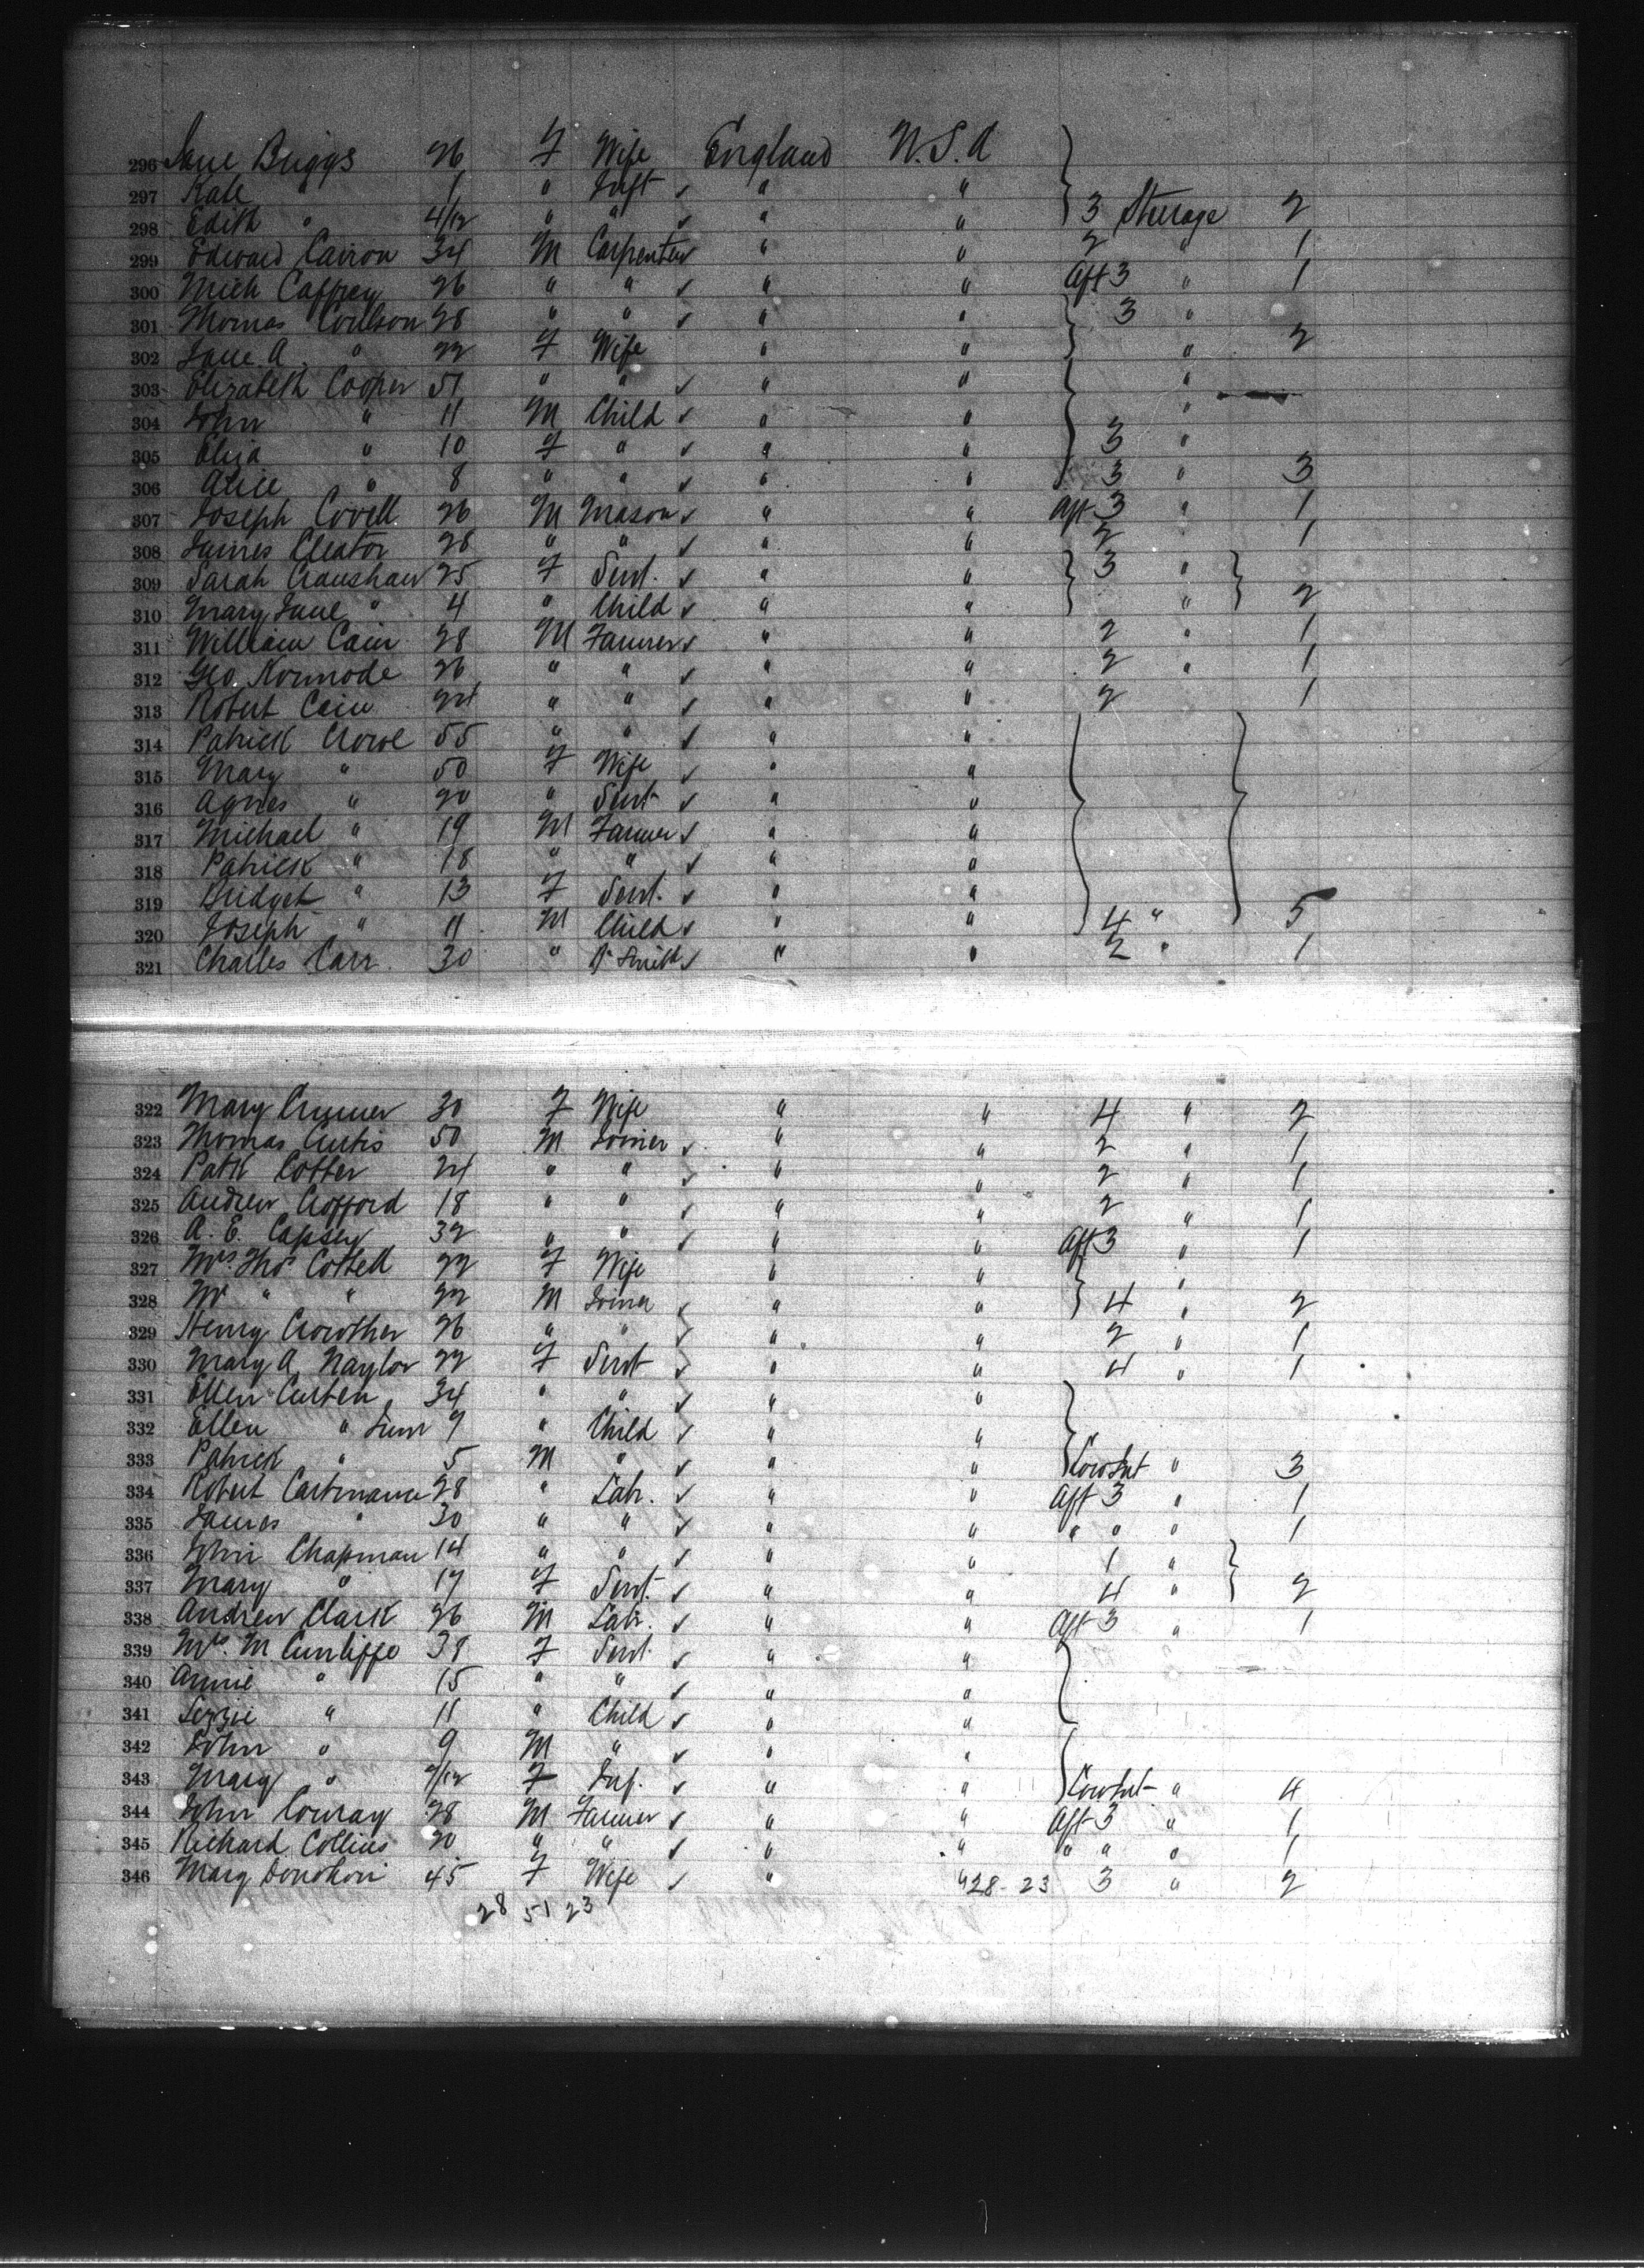 296 Jane Briggs 26 F Wife England U.S.A
297 Kate " 1 " Inft " "
298 Edith " 4/12 " " " " 3 Steerage 2
299 Edward Cairon 34 M Carpenter " " 2 " 1
300 Mich Caffrey 26 " " " " Aft 3 " 1
301 Thomas Coulson 28 " " " " 3 "
302 Jane A. " 22 F Wife " " " 2
303 Elizabeth Cooper 51 " " " " "
304 John " 11 M Child " " "
305 Eliza " 10 F " " " 3 "
306 Alice " 8 " " " " 3 " 3
307 Joseph Covell 26 M Mason " " Aft 3 " 1
308 James Cleator 28 " " " " 2 1
309 Sarah Craushaw 25 F Servt. " " 3 "
310 Mary Jane " 4 " Child " " " 2
311 William Cain 28 M Farmer " " 2 " 1
312 Geo. Kormode 26 " " " " 2 " 1
313 Robert Cain 24 " " " " 2 1
314 Patrick Crowe 55 " " " "
315 Mary " 50 F Wife " "
316 Agnes " 20 " Servt " "
317 Michael " 19 M Farmer " "
318 Patrick " 18 " " " "
319 Bridget " 13 F Servt. " "
320 Joseph " 11 M Child " " 4 " 5
321 Charles Carr 30 " B. Smith " " 2 " 1
322 Mary 30 F Wife " " 4 " 2
323 Thomas Curtis 50 M Joiner " " 2 " 1
324 Patk Cotter 24 " " " " 2 " 1
325 Andrew Crofford 18 " " " " 2 " 1
326 A. E. Capsey 32 " " " " Aft 3 " 1
327 Mrs. Thos Cottell 22 F Wife " " "
328 Mr " " 22 M Joiner " " 4 " 2
329 Henry Crowther 26 " " " " 2 " 1
330 Mary A. Naylor 22 F Servt " " 4 " 1
331 Ellen Curten 34 " " " "
332 Ellen " Junr 9 " Child " "
333 Patrick " 5 M " " " " 3
334 Robert 28 " Labr. " " Aft 3 " 1
335 James " 30 " " " " " " " 1
336 John Chapman 14 " " " " 1 "
337 Mary " 17 F Servt. " " 4 " 2
338 Andrew Clark 26 M Labr. " " Aft 3 " 1
339 Mrs. M Cunliffe 38 F Servt. " "
340 Annie " 15 " " " "
341 Lizzie " 11 " Child " "
342 John " 9 M " " "
343 Mary " F Inf. " " " 4
344 John Conray 28 M Farmer " " Aft 3 " 1
345 Richard Collins 20 " " " " " " " 1
346 Mary Donohoe 45 F Wife " " 28-23 3 " 2
28 51 23